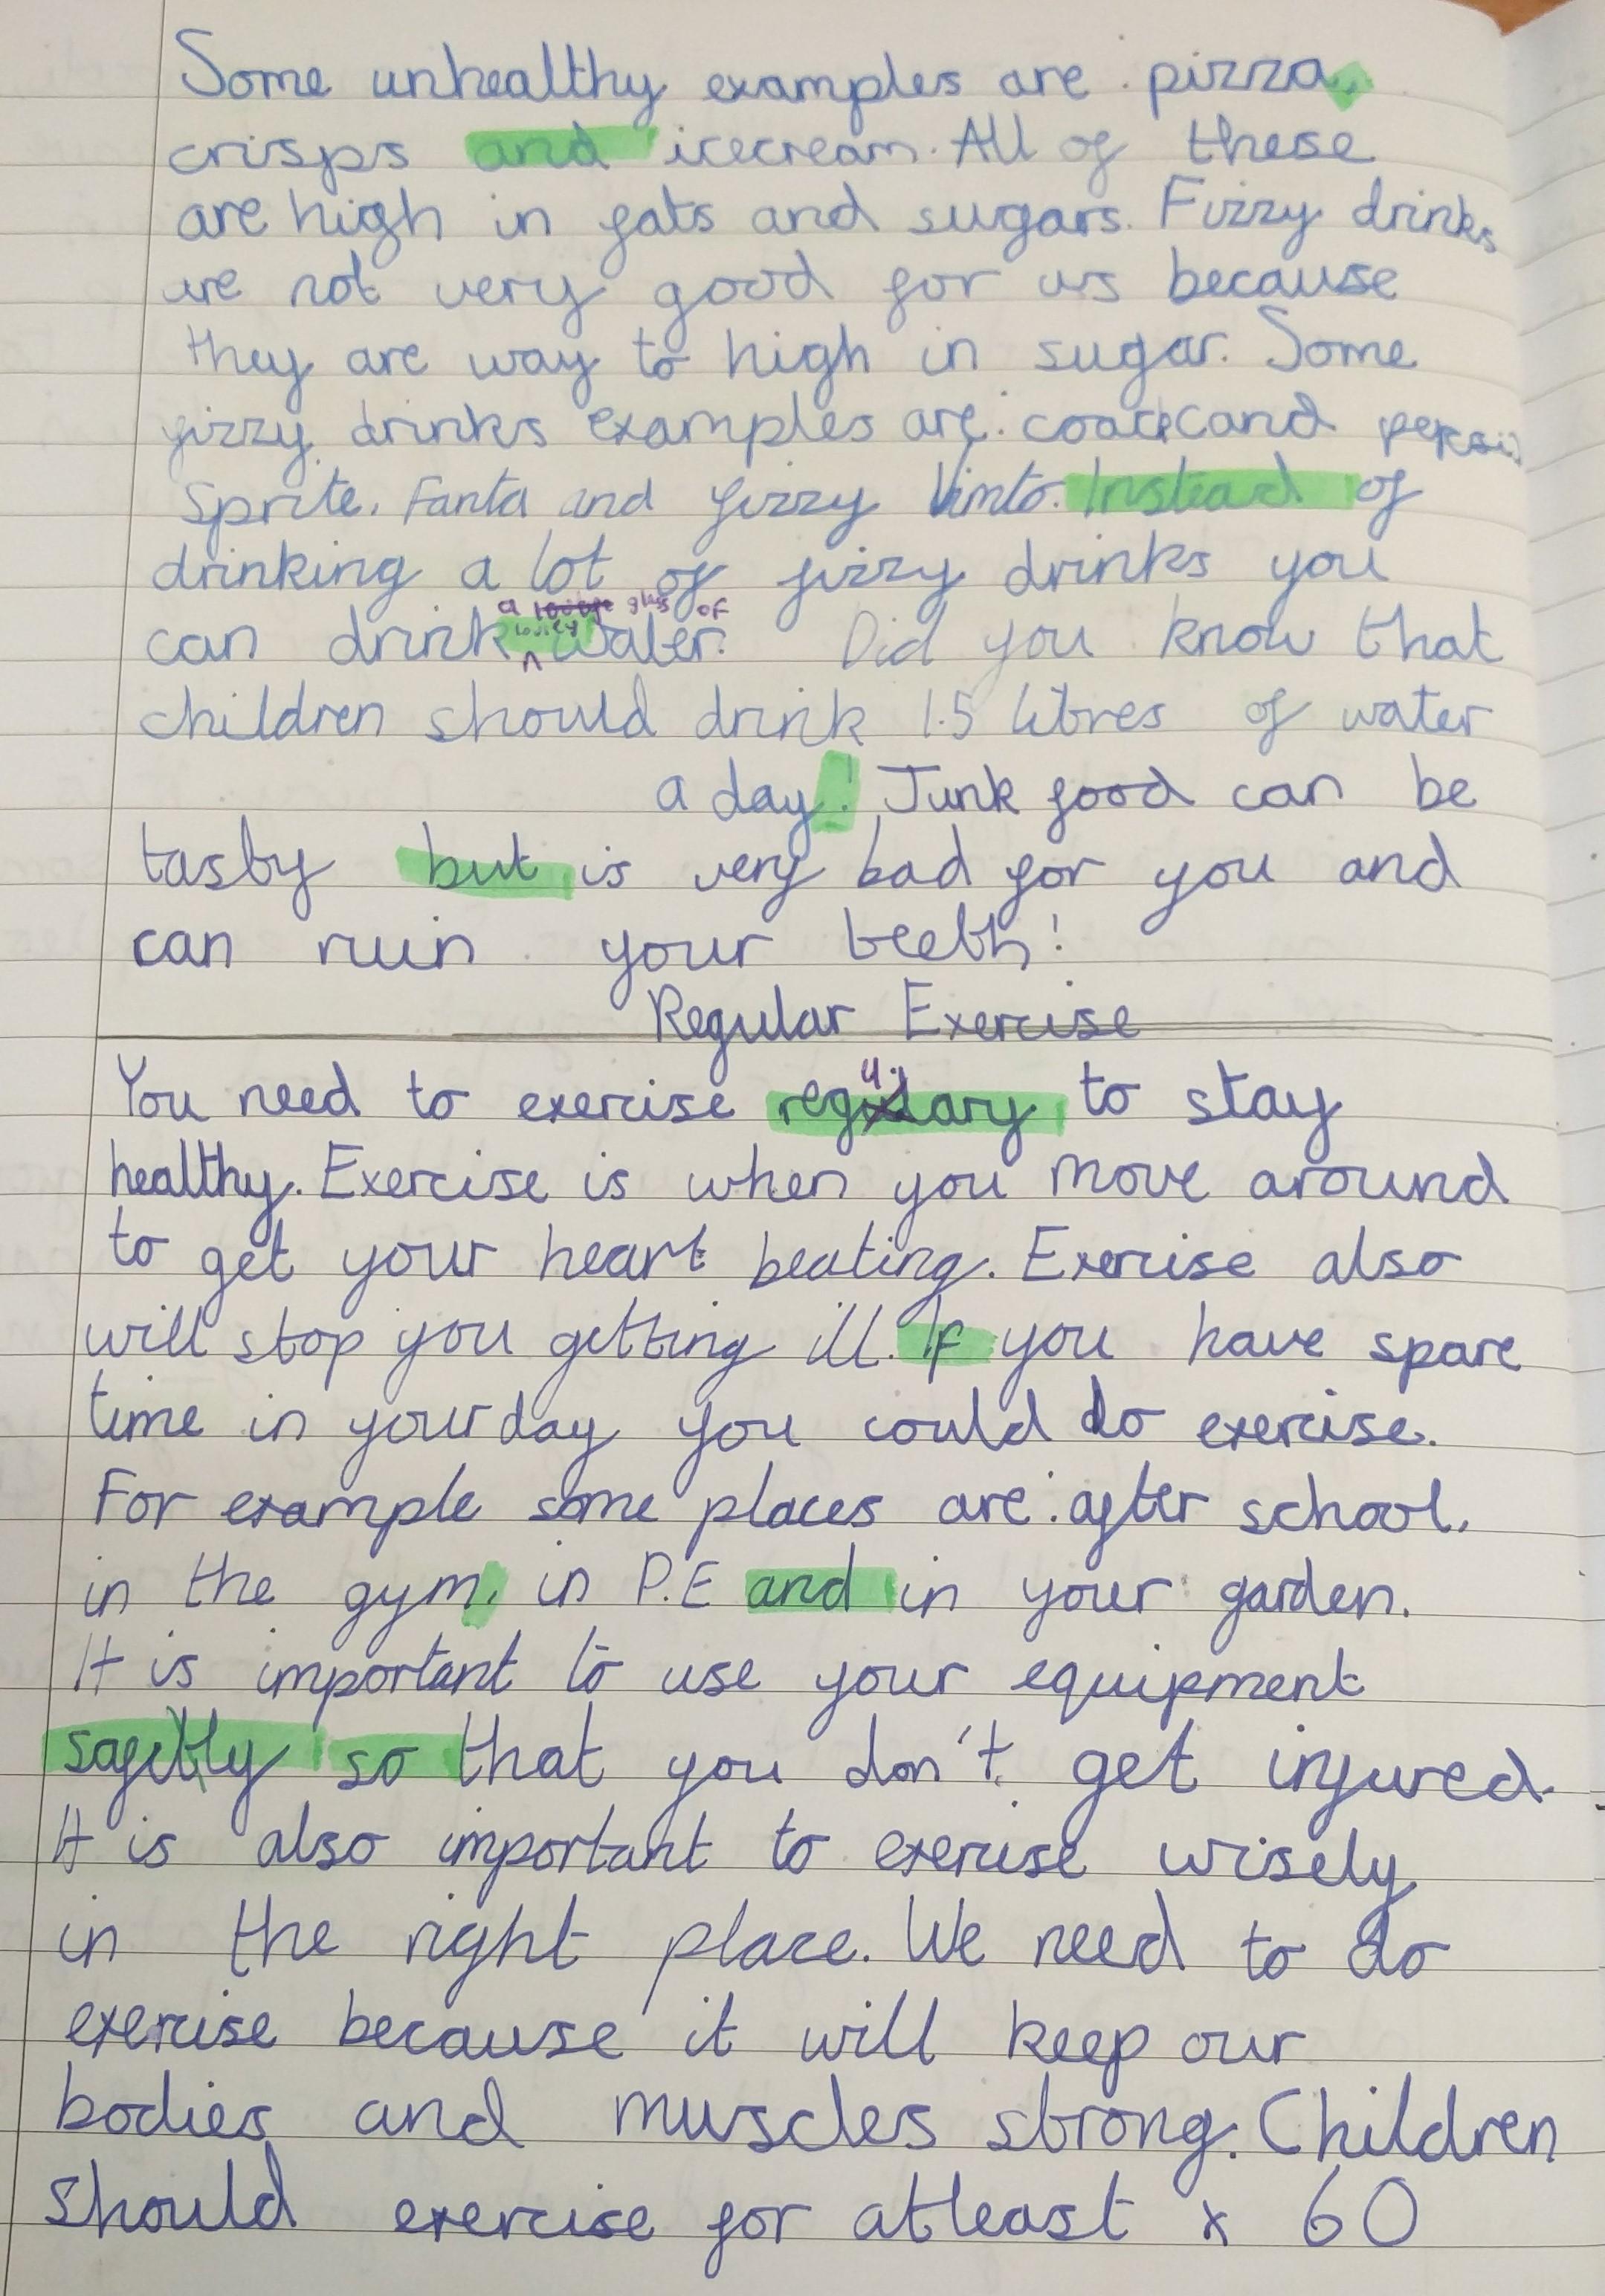 Some unhealthy examples are pizza,
crisps and icecream. All of these
are high in fats and sugars. Fizzy drinks
are not very good for us because
they are way to high in sugar. Some
fizzy drinks examples are: and
Sprite, Fanta and fizzy Vimto. Instead of
drinking a lot of fizzy drinks you
a glass of
lovely
can drink water. Did you know that
children should drink 1.5 litres of water
a day! Junk food can be
tasty but is very bad for you and
can ruin your teeth!
Regular Exercise
You need to exercise regulary to stay
healthy. Exercise is when you move around
to get your heart beating. Exercise also
will stop you getting ill. If you have spare
time in your day you could do exercise.
For example some places are: after school,
in the gym, in P.E and in your garden.
It is important to use your equipment
so that you don't get injured.
It is also important to exercise wisely
in the right place. We need to do
exercise because it will keep our
bodies and muscles strong. Children
should exercise for atleast x 60